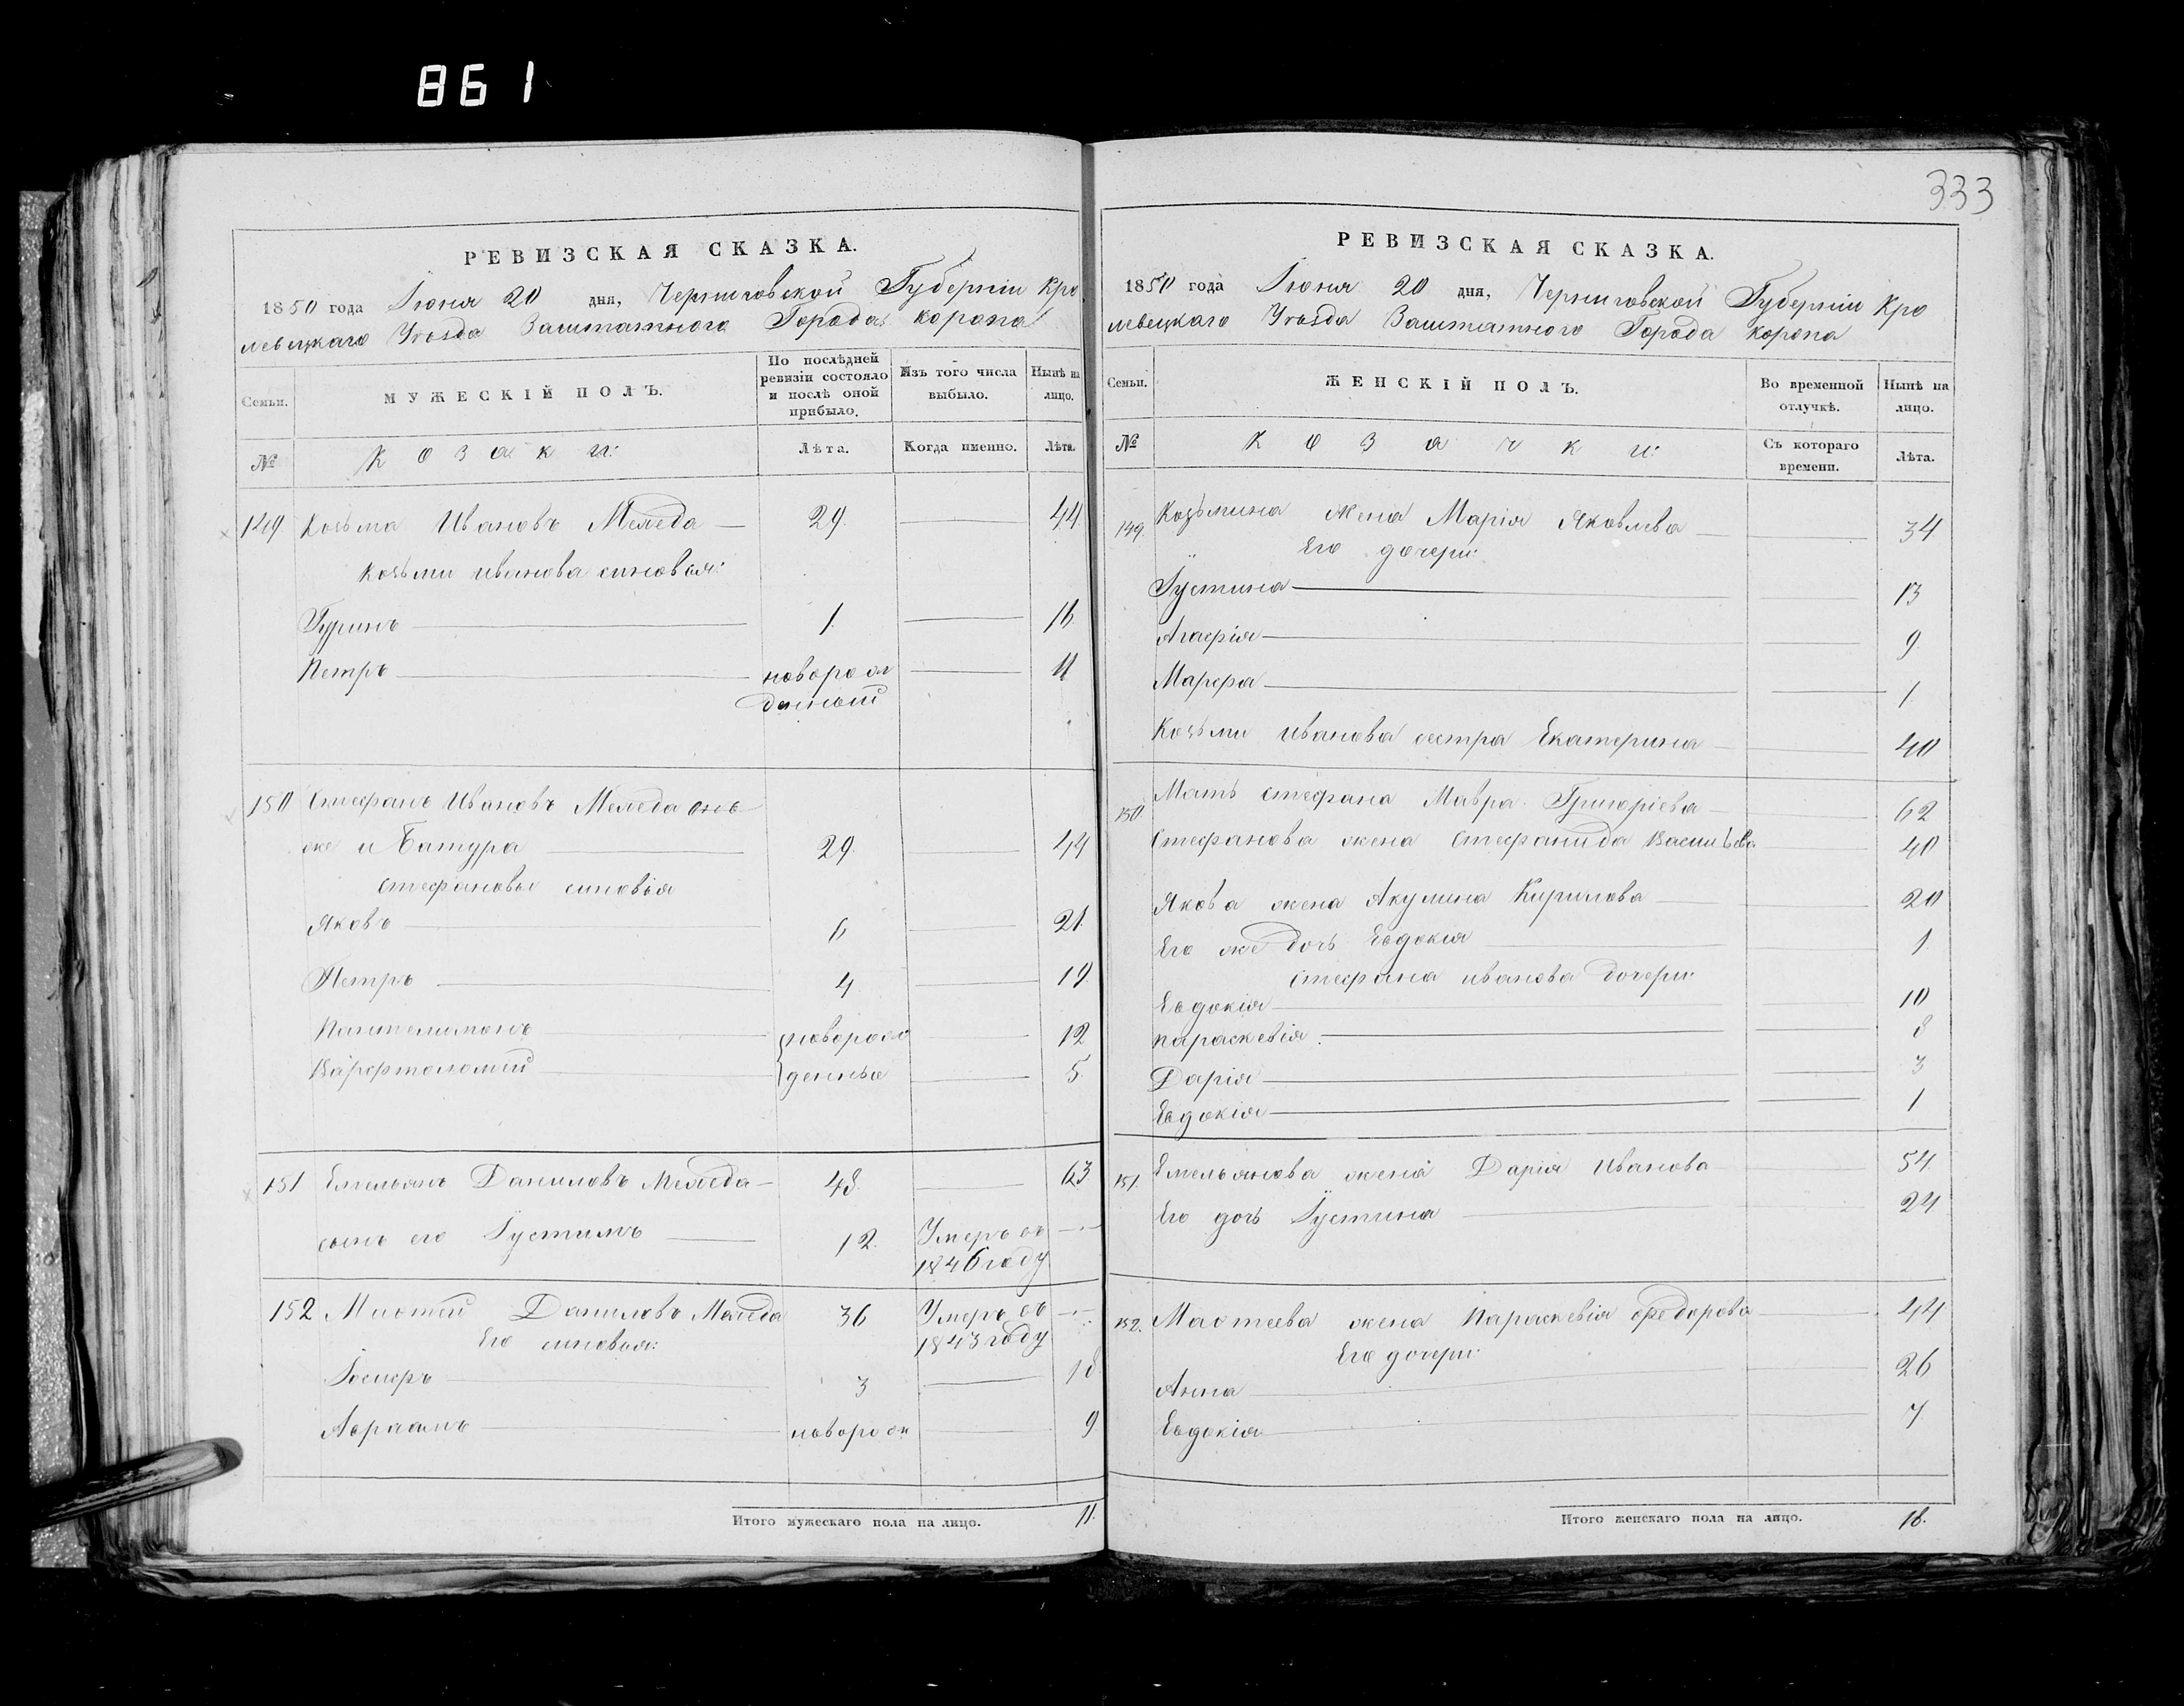 861
333
РЕВИЗСКАЯ СКАЗКА.
1850 года Іюня 20 дня, Черниговской Губерніи Кро
левецкаго Уезда Заштатного Города Коропа
Семьи.
МУЖЕСКІЙ ПОЛЪ.
По послѣдней ревизіи состояло и послѣ оной прибыло.
Изъ того числа выбыло.
Нынѣ на лицо.
№
Козаки:
Лѣта.
Когда именно.
Лѣта.
149 Козьма Ивановъ Меледа — 29. — 44.
Козьми Иванова синовья:
Гуринъ — 1. — 16
Петръ — новорож — 11
данный
150 Стефанъ Ивановъ Меледа онъ
же и Батура — 29. — 44
Стефановы синовья
Яковъ — 6 — 21.
Петръ — 4 — 19.
Пантелимонъ — новорож — 12
Варфтоломей — денные — 5.
151 Емельянъ Даниловъ Меледа — 48. — 63
сынъ его Іустинъ — 12. Умеръ въ —
1846 году
152 Даниловъ Меледа 36 Умеръ въ —
Его синовья: 1843 году
3 — 18.
Авраамъ — новорож — 9
Итого мужескаго пола на лицо. 11.
РЕВИЗСКАЯ СКАЗКА.
1850 года Іюня 20 дня, Черниговской Губерніи Кро
левецкаго Уезда Заштатного Города Коропа
Семьи.
ЖЕНСКІЙ ПОЛЪ.
Во временной отлучкѣ.
Нынѣ на лицо.
№
Козачки:
Съ котораго времени.
Лѣта.
149. Козьмина жена Марія Яковлева — 34
Его дочери:
Іустина — 13
Агафія — 9.
Марфа — 1
Козьми Иванова сестра Екатерина — 40
150. Мать Стефана Мавра Григоріева — 62
Стефанова жена Стефанида Васильева — 40
Якова жена Акулина Кирилова — 20
Его же дочь Евдокия — 1
Стефана Иванова дочери:
Евдокія — 10
Параскевія. — 8
Дарія — 3
Евдокія — 1
151. Емельянова жена Дарія Иванова — 54.
Его дочь Іустина — 24
152. жена Параскевія Федорова — 44
Его дочери:
Анна — 26
Евдокія — 7
Итого женскаго пола на лицо. 18.